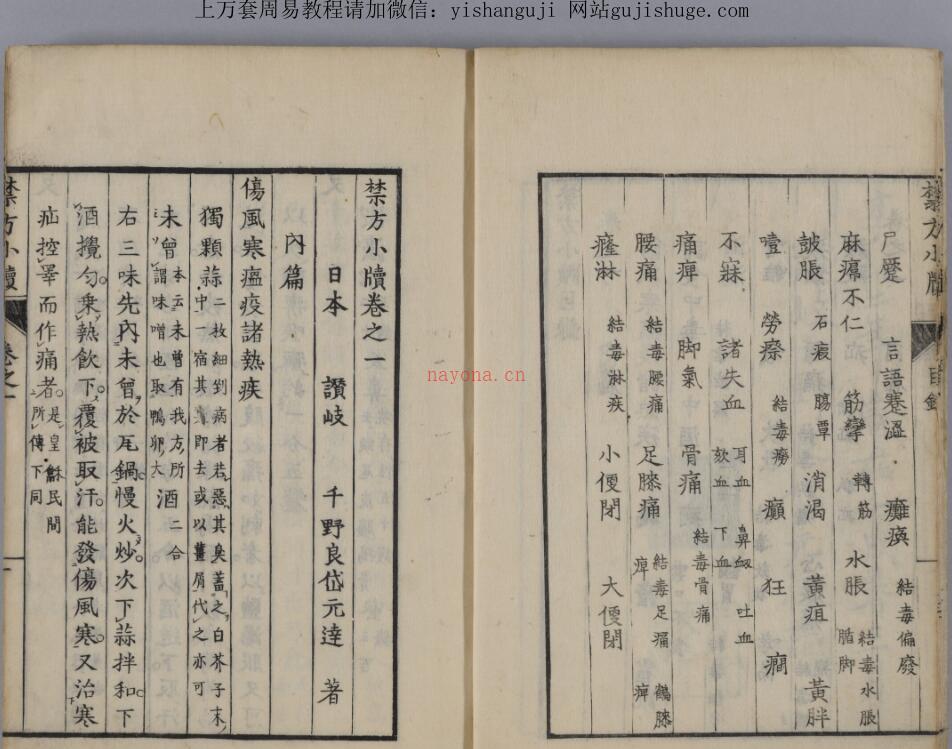 上万套周易教程请加微信：yishanguji 网站gujishuge.com
禁方小牘 目録
尸蹷 言語蹇澁 癱瘓 結毒偏廢
麻瘪不仁 筋攣 轉筋 水脹 結毒水脹 脂脚
皷脹 石瘕 腸覃 消渇 黃疸 黃胖
噎 勞瘵 結毒癆 癲 狂 癇
不寐 諸失血 耳血 鼻衂 吐血 欬血 下血
痛痺 脚氣 骨痛 結毒骨痛
腰痛 結毒腰痛 足膝痛 結毒足痛 痺 鶴膝 痺
癃淋 結毒淋疾 小便閉 大便閉
禁方小牘卷之一
日本 讃岐 千野良岱元達 著
內篇
傷風寒瘟疫諸熱疾
獨顆蒜 二枚細剉病者若惡其臭蓋之白芥子末
中一宿其臭即去或以薑屑代之亦可
未曾 本云未曾有我方所謂味噌也取鴨卵大 酒 二合
右三味先內未曾於瓦鍋慢火炒次下蒜拌和下
酒攪勻乗熱飲下覆被取汗能發傷風寒又治寒
疝控睪而作痛者 是皇龢民間所傳下同
禁方小牘 卷之一 一
nayona.cn